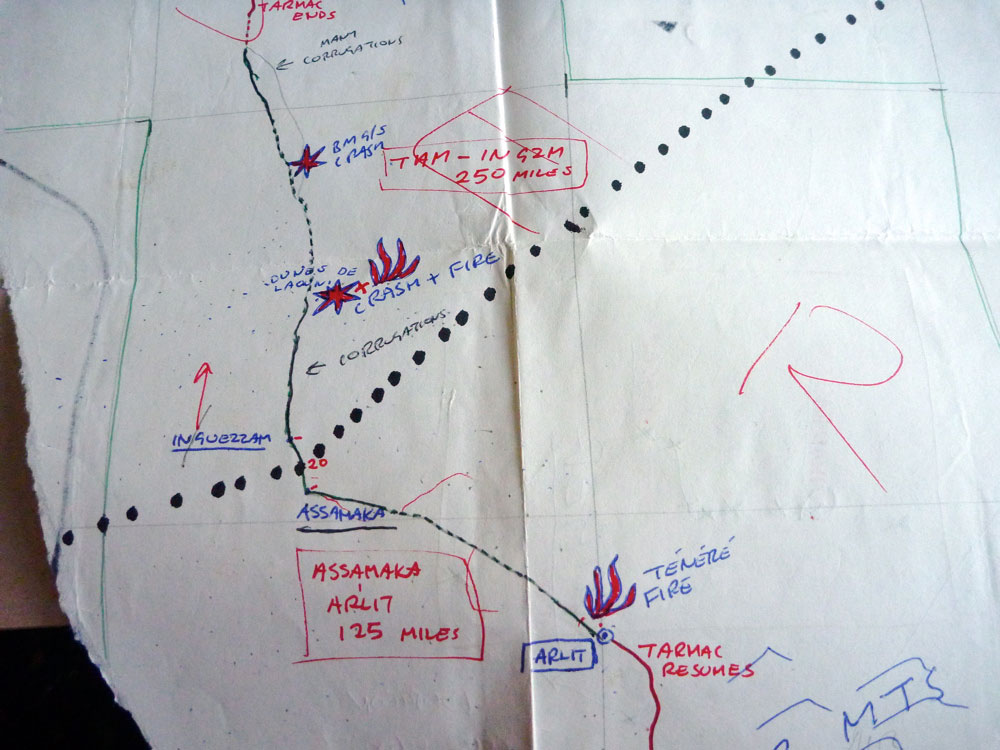 TARMAC
ENDS
MANY
CORRUGATIONS
BMG/S
CRASH
TAM - IN GZM
250 MILES
DUNES DE
LAOUNI
CRASH + FIRE
CORRUGATIONS
IN GUEZZAM
20
ASSAMAKA
ASSAMAKA
-
ARLIT
125 MILES
TÉNÉRÉ
FIRE
ARLIT
TARMAC
RESUMES
R
MTS